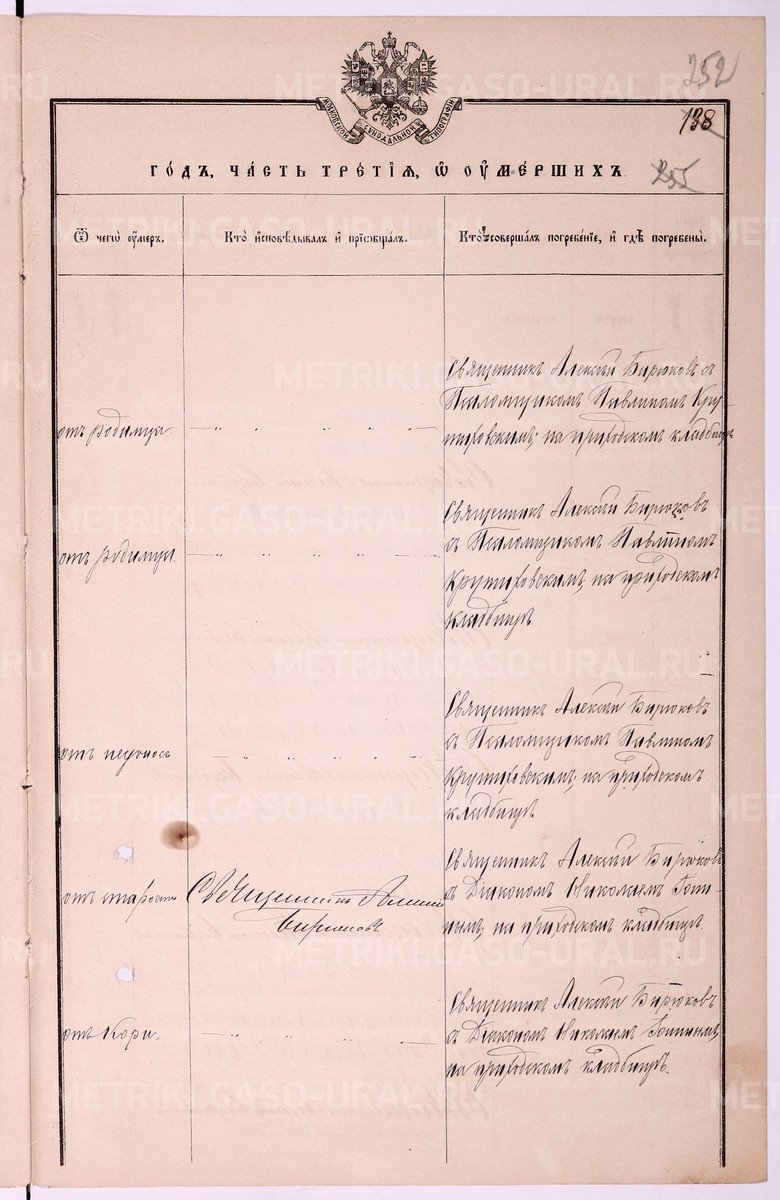 252
138
255
МОСКОВСКОЙ СѴНОДАЛЬНОЙ ТИПОГРАФІИ
ГОДЪ, ЧАСТЬ ТРЕТІЯ, Ѿ ОУМЕРШИХЪ.
Ѿ чегѡ оумеръ.
Кто исповѣдывалъ и прїѡбщалъ.
Кто совершалъ погребенїе, и гдѣ погребены.
Священникъ Алексѣй Бирюковъ съ
Псаломщикомъ Павлиномъ Кру-
отъ родимца
тировскимъ; на приходскомъ кладбищѣ
Священникъ Алексѣй Бирюковъ
съ Псаломщикомъ Павлиномъ
отъ родимца
Крутировскимъ, на приходскомъ
кладбищѣ
Священникъ Алексѣй Бирюковъ
съ Псаломщикомъ Павлиномъ
отъ поноса
Крутировскимъ; на приходскомъ
кладбищѣ.
Священникъ Алексѣй Бирюковъ
отъ старости.
Священникъ Алексѣй
Бирюковъ
съ Діакономъ Николаемъ
нымъ; на приходскомъ кладбищѣ.
Священникъ Алексѣй Бирюковъ
отъ Кори.
съ Діакономъ Николаемъ
на приходскомъ кладбищѣ.
METRIKI.GASO-URAL.RU